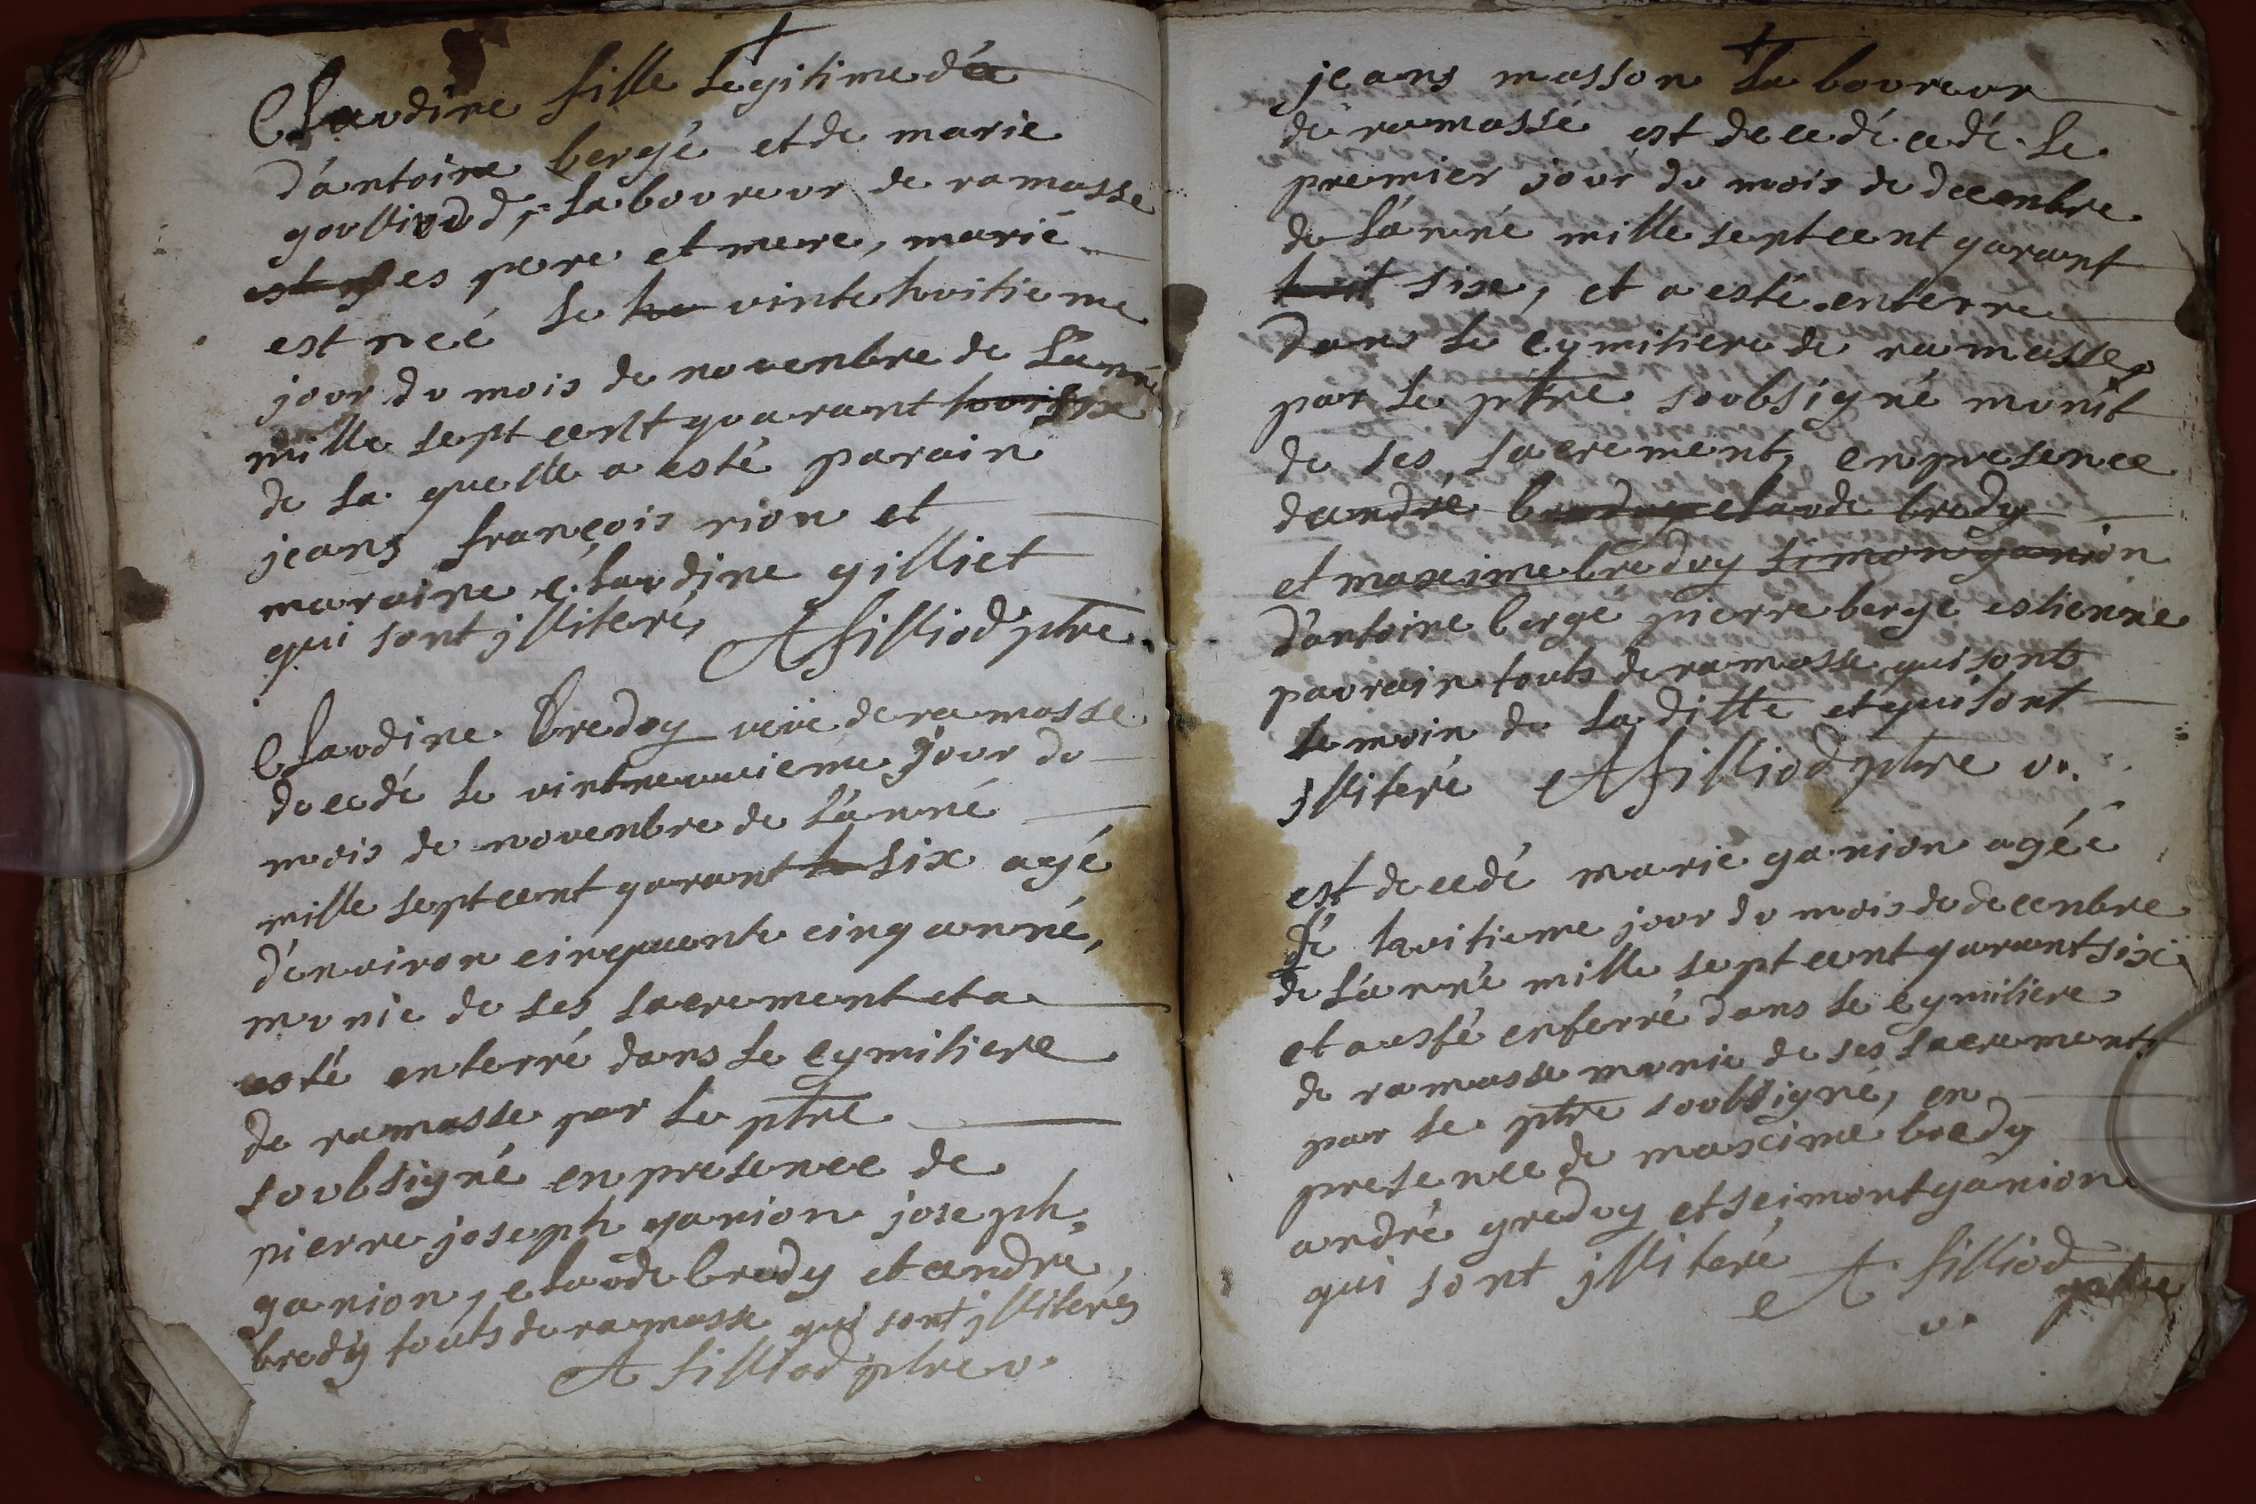 Claudine fille legitime dea
d'antoine bergé et de marie
goullioud, laboureur de ramasse
est ses pere et mere, marié
est neé le hu vintehuitieme
jour du mois de novenbre de l'anné
mille sept cent quarant huit six
de la quelle a esté parain
jeans françois rion et
maraine claudine gilliet
qui sont jlliteré, A filliod ptre
Claudine Bredoy veüe de ramasse
decedé le vintneuvieme jour du
mois de novenbre de l'anné
mille septcent quarant h six agé
d'environ cinquante cinq anné,
munie de ses sacrement et a
esté enterré dans le cymitiere
de ramasse par le ptre
soubsigné en presence de
pierre joseph ganion joseph
ganion, claude bredy et andré
bredy touts de ramasse qui sont jlliterés
A filliod ptre v.
jeans masson laboureur
de ramasse est decedécedé le
premier jour du mois de decenbre
de l'anné mille septcent quarant
huit six, et a esté enterre
dans le cymitiere de ramasse
par le ptre soubsigné munit
de ses sacrement, en presence
dandré bredoy claude bredy
et maxime bredoy simon ganion
d'antoine bergé pierre berge estienne
paurain touts de ramasse qui sont
temoin de la ditte et qui sont
jlliteré A filliod ptre v.
est decedé marie ganion agéé
de huitieme jour du mois de decenbre
de l'anné mille septcent quarant six
et a esté enterré dans le cymitiere
de ramasse munie de ses sacrements
par le ptre soubsigné, en
presence de maxime bredy
andré gredoy et seimont ganion
qui sont jlliteré A filliod
v. ptre